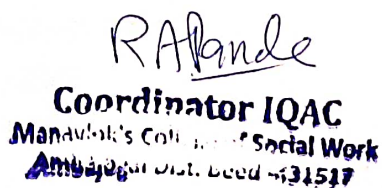 RAPande
Coordinator IQAC
Manavlok's College of Social Work
Ambajogai Dist. Beed -431517